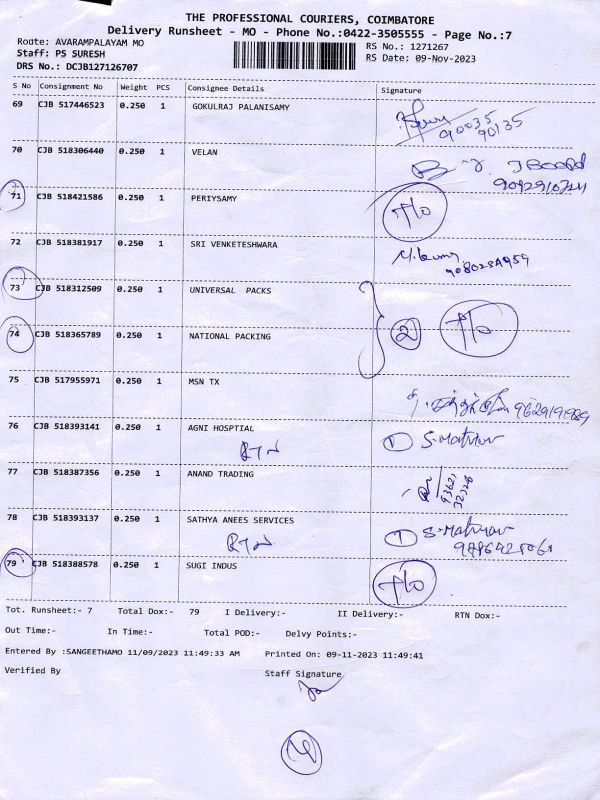 THE PROFESSIONAL COURIERS, COIMBATORE
Delivery Runsheet - MO - Phone No.:0422-3505555 - Page No.:7
Route: AVARAMPALAYAM MO
RS No.: 1271267
Staff: PS SURESH
RS Date: 09-Nov-2023
DRS No.: DCJB127126707
S No Consignment No Weight PCS Consignee Details Signature
69 CJB 517446523 0.250 1 GOKULRAJ PALANISAMY
90035
90135
70 CJB 518306440 0.250 1 VELAN
71 CJB 518421586 0.250 1 PERIYSAMY
T/O
72 CJB 518381917 0.250 1 SRI VENKETESHWARA
73 CJB 518312509 0.250 1 UNIVERSAL PACKS
2 T/O
74 CJB 518365789 0.250 1 NATIONAL PACKING
75 CJB 517955971 0.250 1 MSN TX
76 CJB 518393141 0.250 1 AGNI HOSPTIAL
RTN 1
77 CJB 518387356 0.250 1 ANAND TRADING
93621
32328
78 CJB 518393137 0.250 1 SATHYA ANEES SERVICES
RTN 1
79 CJB 518388578 0.250 1 SUGI INDUS
T/O
Tot. Runsheet:- 7 Total Dox:- 79 I Delivery:- II Delivery:- RTN Dox:-
Out Time:- In Time:- Total POD:- Delvy Points:-
Entered By :SANGEETHAMO 11/09/2023 11:49:33 AM Printed On: 09-11-2023 11:49:41
Verified By Staff Signature